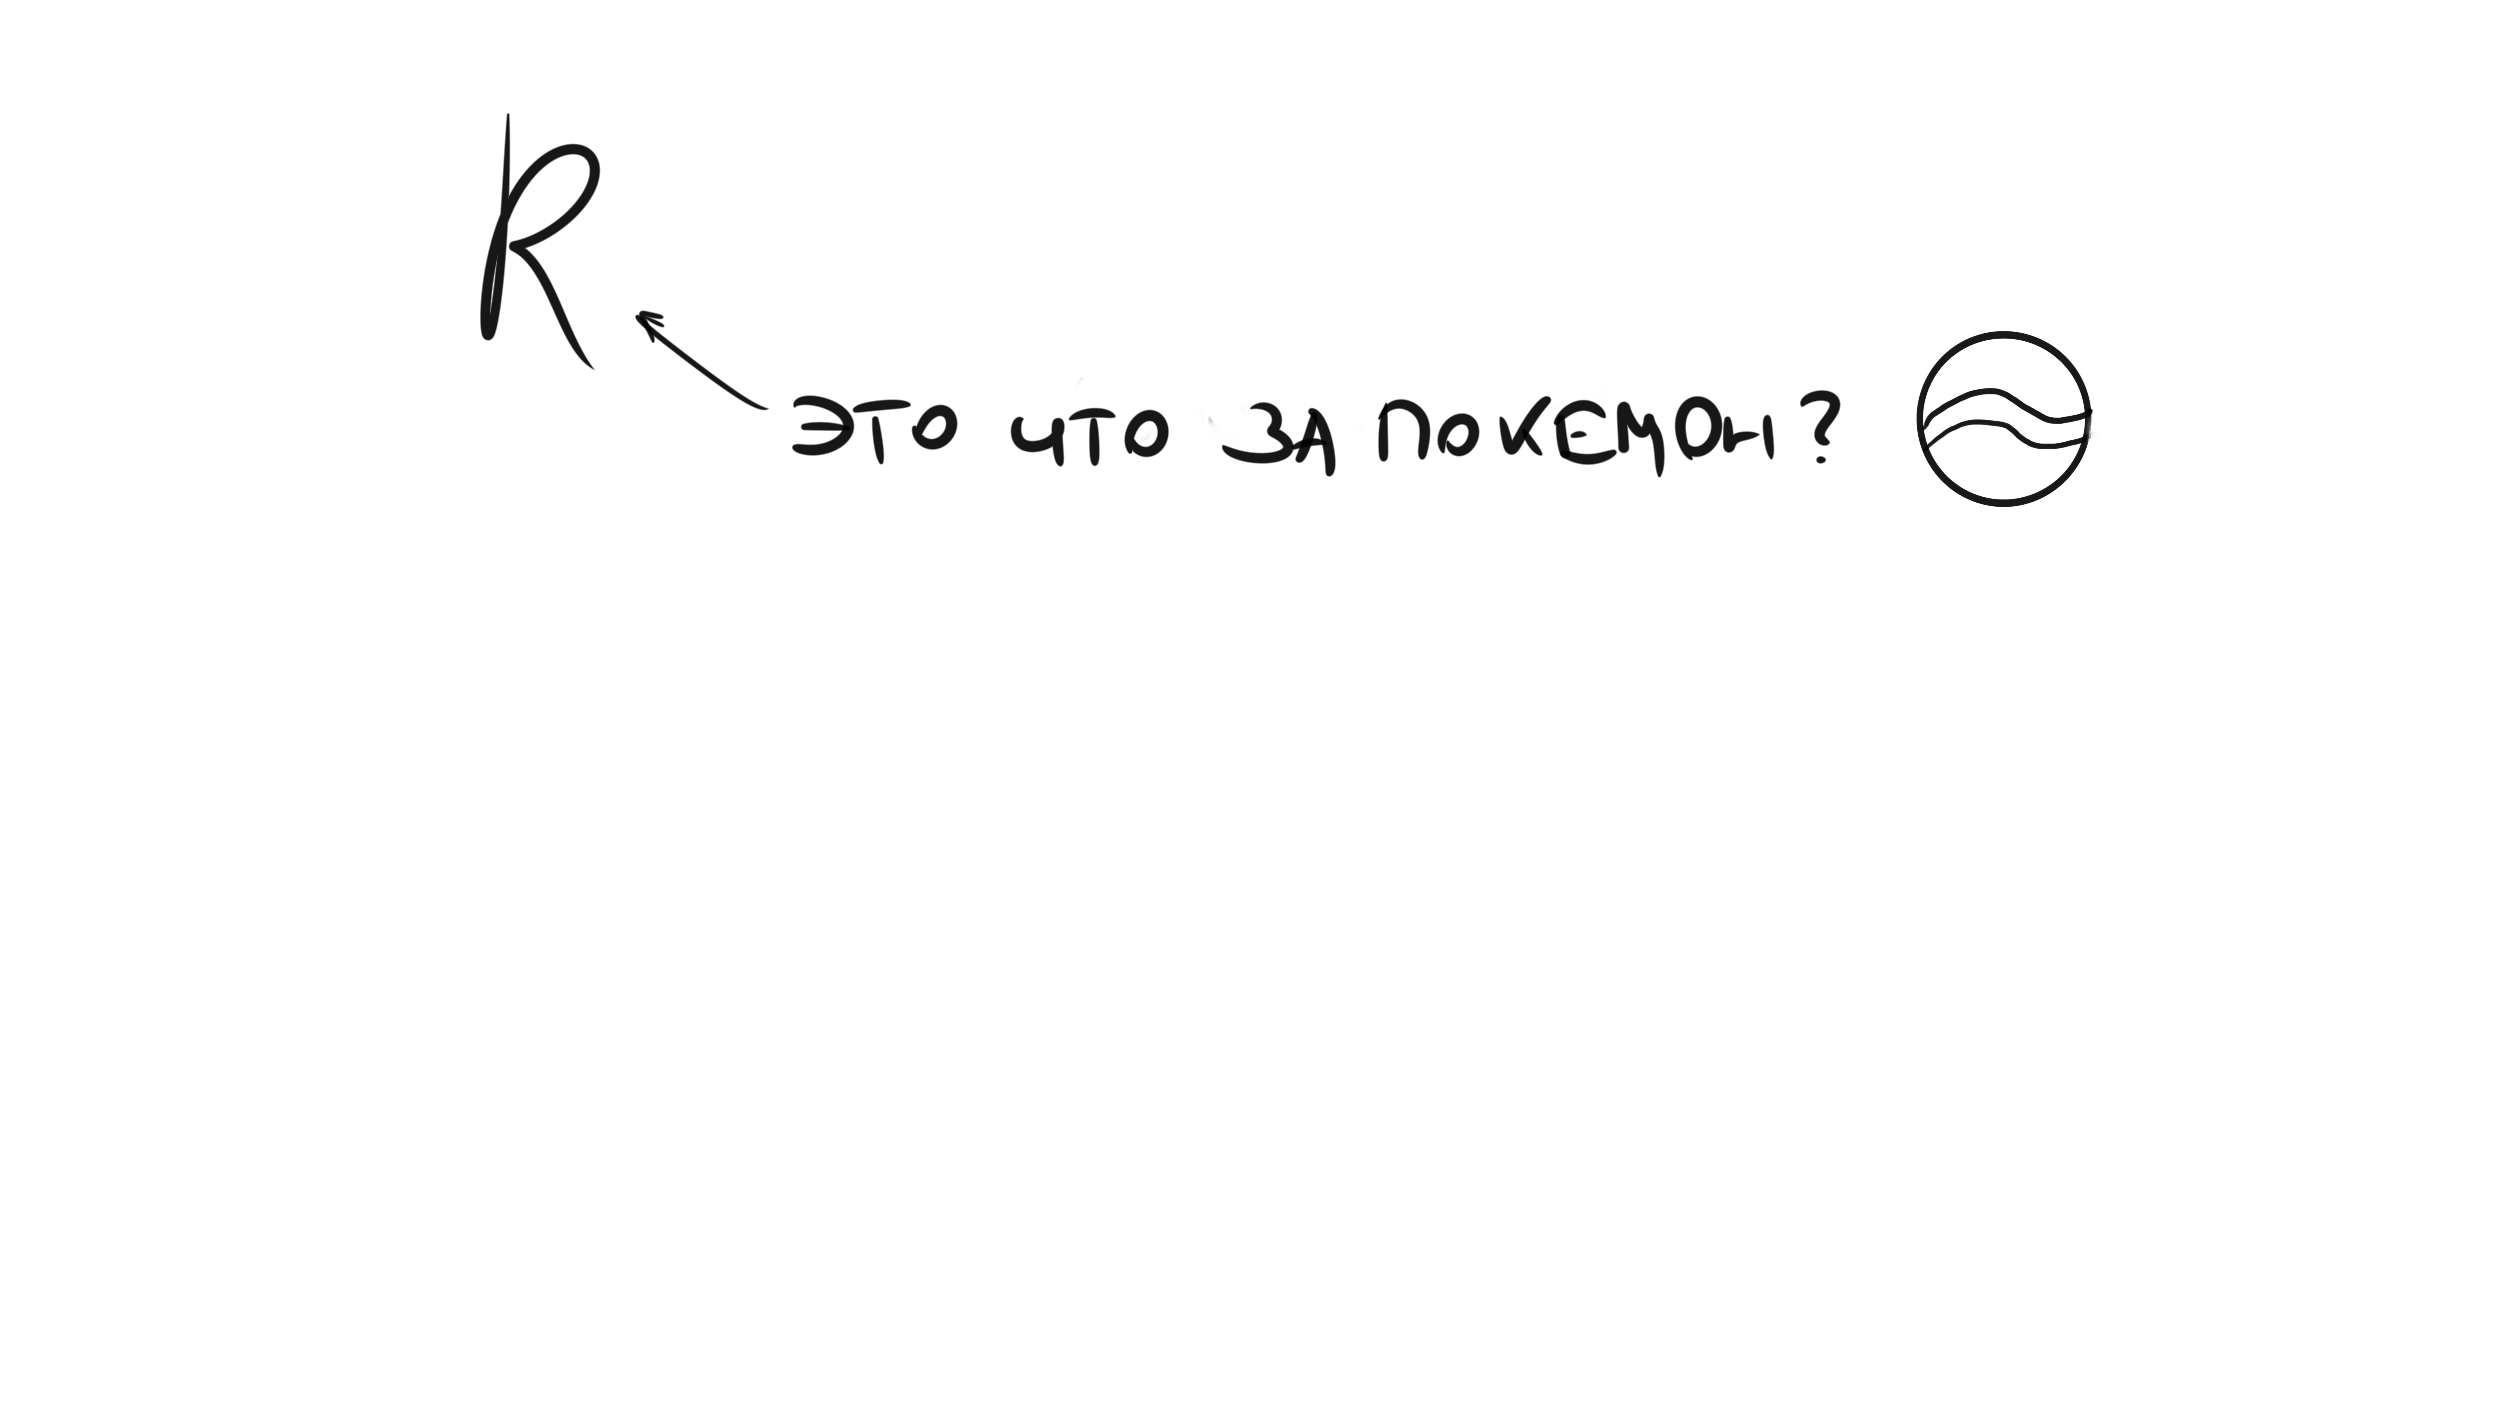 R
ЭТО ЧТО ЗА ПОКЕМОН?